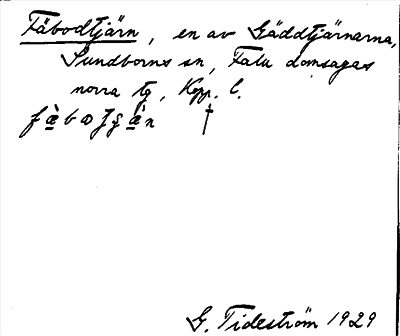 Fäbodtjärn, en av Gäddtjärnarna,
Sundborns sn, Falu domsagas
norra tg, Kopp. l.
G. Tideström 1929